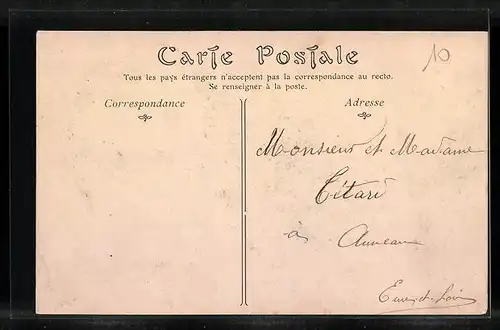 Carte Postale
10
Tous les pays étrangers n'acceptent pas la correspondance au recto.
Se renseigner à la poste.
Correspondance
Adresse
Monsieur et Madame
Tétard
à Auneau
Eure-et-Loir